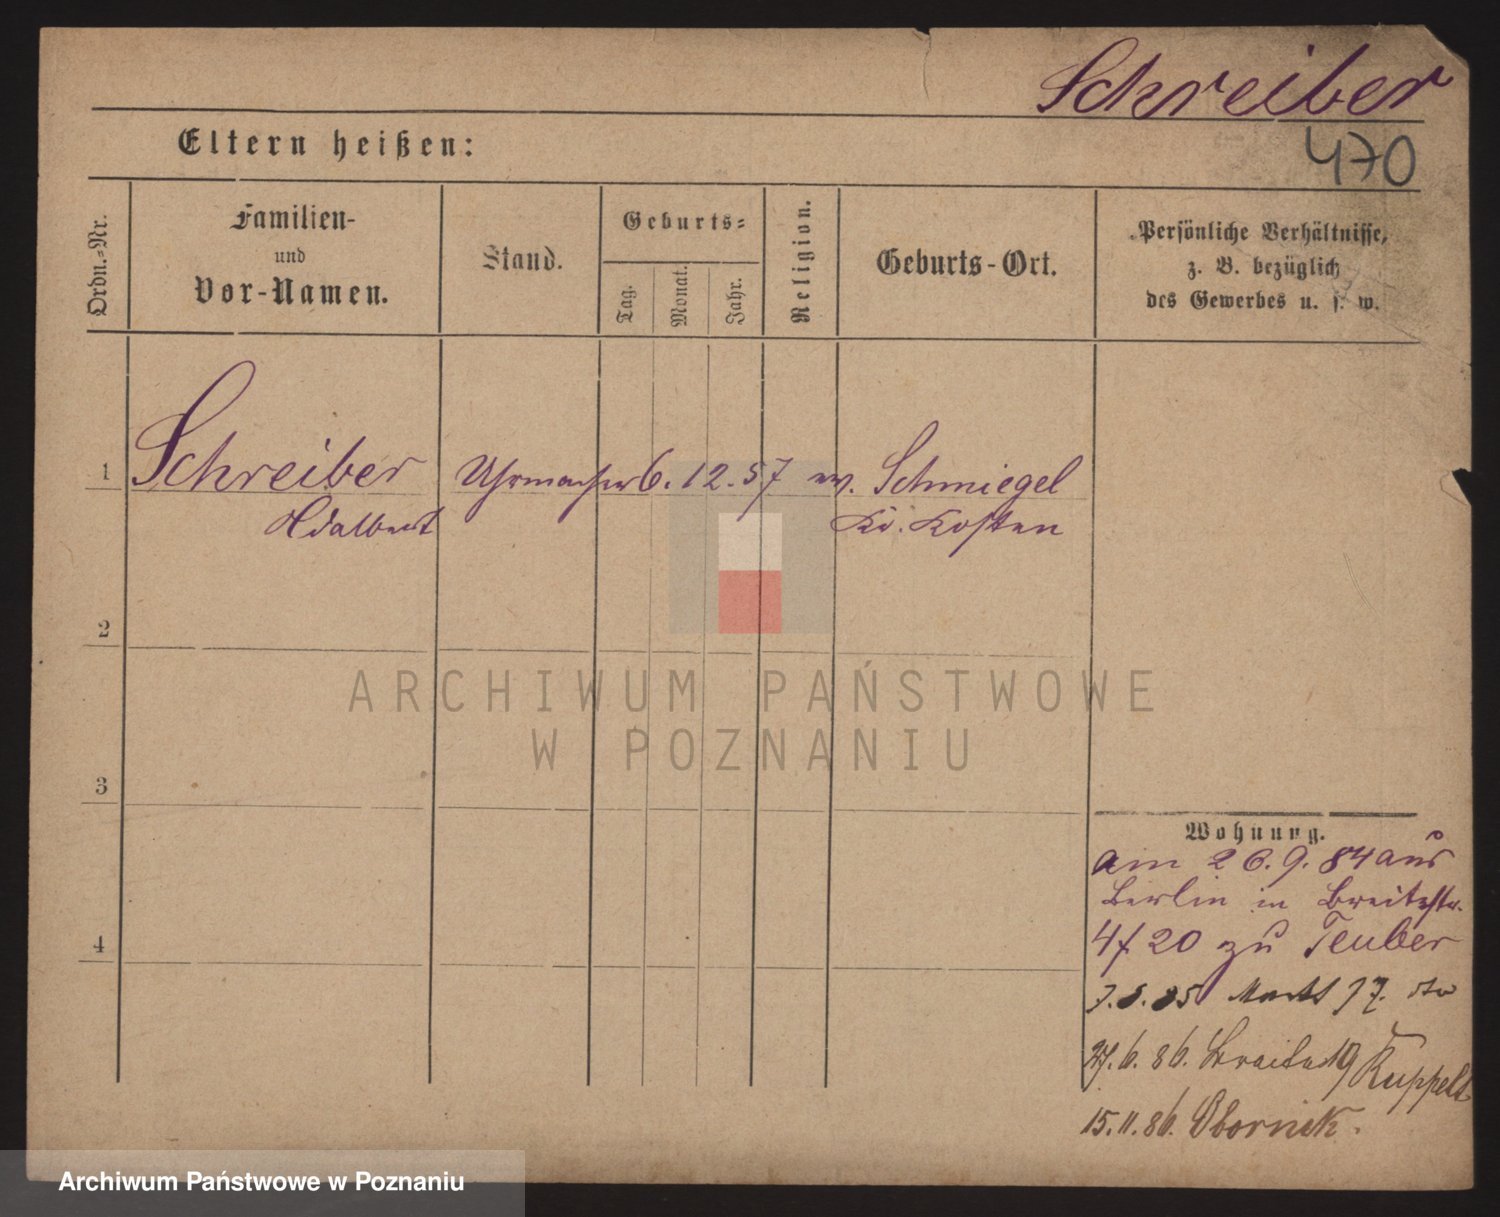 Schreiber
470
Eltern heißen:
Ordn.-Nr.
Familien-
und
Vor-Namen.
Stand.
Geburts-
Tag.
Monat.
Jahr.
Religion.
Geburts-Ort.
Persönliche Verhältnisse,
z. B. bezüglich
des Gewerbes u. s. w.
1 Schreiber Uhrmacher 6. 12. 57 Schmiegel
Adalbert Kr. Kosten
2
3
4
Wohnung.
am 26.9.84 aus
Berlin in Breitestr.
20 zu Teuber
Markt
86. Breitestr 19 Ruppelt
15.11.86. Obornik.
ARCHIWUM PAŃSTWOWE
W POZNANIU
Archiwum Państwowe w Poznaniu